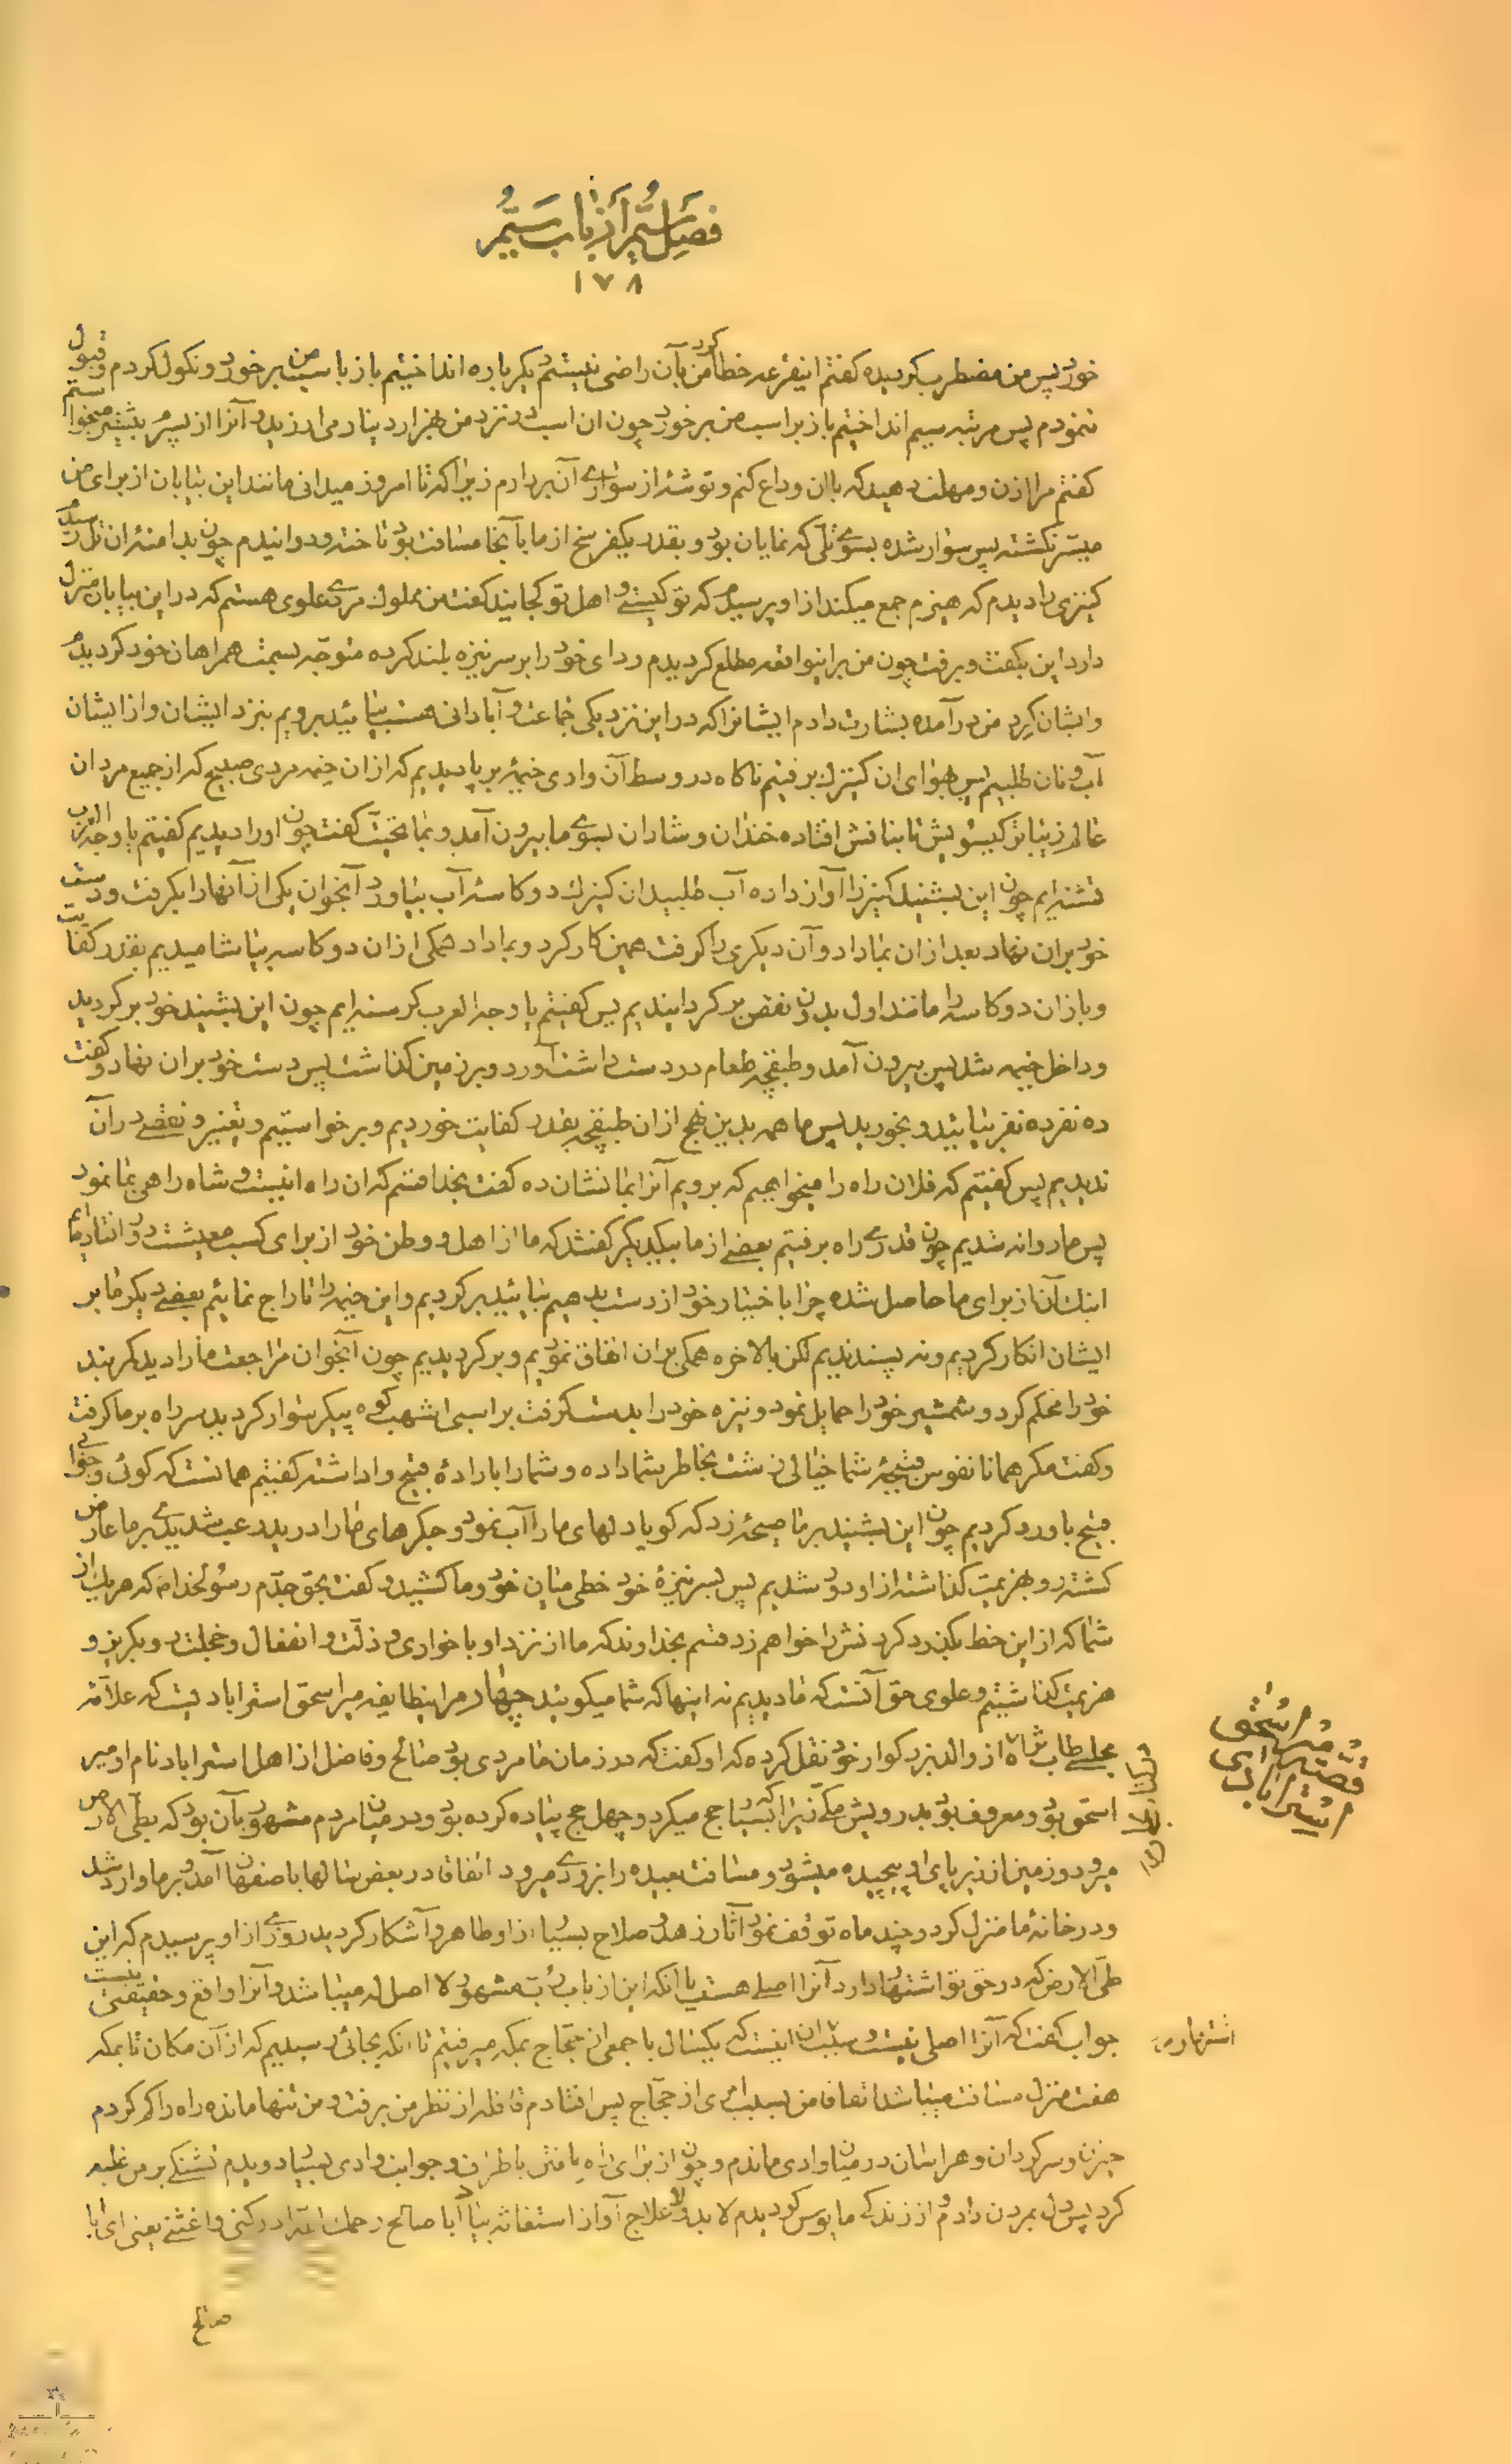 فصل سیم از باب سیم
۱۷۸
خورد پس من مضطرب گردیده گفتم این قرعه خطا کرد من بآن راضی نیستم یکبار باره انداختیم باز باسب من برخورد و نکول کردم و قبول
ننمودم پس مرتبه سیم انداختیم باز بر اسب من برخورد چون ان اسب در نزد من بهزار دینار می ارزید و آنرا از پسر بیشتر میخواستم
گفتم مرا اذن و مهلت دهید که باان وداع کنم و توشه از سواری آن بردارم زیرا که تا امروز میدانی مانند این بیابان از برای من
میسر نگشته پس سوار شده بسوی تلی که نمایان بود و بقدر یکفرسخ از ما بآنجا مسافت بود تاخته و دوانیدم چون بدامنه ان تل رسیدم
کنیزی را دیدم که هیزم جمع میکند از او پرسیدم که تو کیستی و اهل تو کجایند گفت من مملوک مردی علوی هستم که در این بیابان منزل
دارد این بگفت و برفت چون من بر اینواقعه مطلع گردیدم ردای خود را بر سر نیزه بلند کرده متوجه بسمت همراهان خود گردیدم
وایشان گرد من درآمده بشارت دادم ایشانرا که در این نزدیکی جماعت و آبادانی هست بیائید برویم بنزد ایشان و از ایشان
آب و نان طلبیم پس بهوای ان کنیزک برفتیم ناگاه در وسط آن وادی خیمۀ بر پا دیدیم که از ان خیمه مردی صبیح که از جمیع مردان
عالم زیباتر گیسویش تا بنافش افتاده خندان و شادان بسوی ما بیرون آمد و بما تحیت گفت چون او را دیدیم گفتیم یا وجه العرب
تشنه ایم چون این بشنید کنیز را آواز داده آب طلبید ان کنیزک دو کاسه آب بیاورد آنجوان یکی از آنها را بگرفت و دست
خود بر ان نهاد بعد از ان بما داد و آن دیگری را گرفت همین کار کرد و بما داد همگی از ان دو کاسه بیاشامیدیم بقدر کفایت
و باز ان دو کاسه را مانند اول بدون نقص برگردانیدیم پس گفتیم یا وجه العرب گرسنه ایم چون این بشنید خود برگردید
و داخل خیمه شد پس بیرون آمد و طبقچه طعام در دست داشت آورد و بر زمین گذاشت پس دست خود بر ان نهاد و گفت
ده نفر ده نفر بیائید و بخورید پس ما همه بدین نهج از ان طبقچه بقدر کفایت خوردیم و برخواستیم و تغییر و نقصی در آن
ندیدیم پس گفتیم که فلان راه را میخواهیم که برویم آنرا بما نشان ده گفت بخدا قسم که ان راه اینست و شاه راهی بما نمود
پس ما روانه شدیم چون قدری راه برفتیم بعضی از ما بیکدیگر گفتند که ما از اهل و وطن خود از برای کسب معیشت دور افتاده ایم
اینک آن از برای ما حاصل شده چرا باختیار خود از دست بدهیم بیائید برگردیم و این خیمه را تاراج نمائیم بعضی دیگر ما بر
ایشان انکار کردیم و نه پسندیدیم لکن بالاخره همگی بر ان اتفاق نمودیم و برگردیدیم چون آنجوان مراجعت ما را دید کمربند
خود را محکم کرد و شمشیر خود را حمایل نمود و نیزه خود را بدست گرفت بر اسبی اشهب کوه پیکر سوار گردید سر راه بر ما گرفت
و گفت مگر همانا نفوس قبیحۀ شما خیالی زشت بخاطر شما داده و شما را بارادۀ قبیح واداشته گفتیم همانست که گوئی و جوابی
قبیح باو رد کردیم چون این بشنید بر ما صیحۀ زد که گویا دلهای ما را آب نمود و جگرهای ما را درید رعب شدیدی بر ما عارض
گشته رو بهزیمت گذاشته از او دور شدیم پس بسر نیزۀ خود خطی میان خود و ما کشید و گفت بحق جدم رسولخدا که هر یک از
شما که از این خط بگذرد گردنش را خواهم زد قسم بخداوند که ما از نزد او با خواری و ذلت و انفعال و خجلت رو بگریز و
هزیمت گذاشتیم و علوی حق آنست که ما دیدیم نه اینها که شما میگویند چهارم اینطایفه میر اسحق استرابادیست که علامه
مجلسی طاب ثراه از والد بزرگوار خود نقل کرده که او گفت که در زمان ما مردی بود صالح و فاضل از اهل استراباد نام او میر
اسحق بود و معروف بود بدرویش مکی زیرا که بسیار حج میکرد و چهل حج پیاده کرده بود و در میان مردم مشهور بآن بود که بطی الارض
میرود و زمین از زیر پای او پیچیده میشود و مسافت بعیده را بزودی میرود اتفاقا در بعض سالها باصفهان آمد و بر ما وارد شد
و در خانۀ ما منزل کرد و چند ماه توقف نمود آثار زهد و صلاح بسیار از او ظاهر و آشکار گردید روزی از او پرسیدم که این
طی الارض که در حق تو اشتهار دارد آنرا اصلی هست یا انکه این از باب رب مشهور لا اصل له میباشد و آنرا واقع و حقیقتی نیست
جواب گفت که آنرا اصلی نیست و سبب ان اینست که یکسال با جمعی از حجاج بمکه میرفتیم تا انکه بجائی رسیدیم که از آن مکان تا بمکه
هفت منزل مسافت میباشد اتفاقا من بسبب امری از حجاج پس افتادم قافله از نظر من برفت و من تنها مانده راه را گم کردم
حیران و سرگردان و هراسان در میان وادی ماندم و چون از برای راه یافتن باطراف و جوانب وادی بسیار دویدم تشنگی بر من غلبه
کرد پس دل بمردن دادم و از زندگی مایوس گردیدم لابد و لاعلاج آواز استغاثه بیا ابا صالح رحمک الله ادرکنی و اغثنی یعنی ای ابا
صالح
قصه میر اسحق
استرابادی
اشتهار